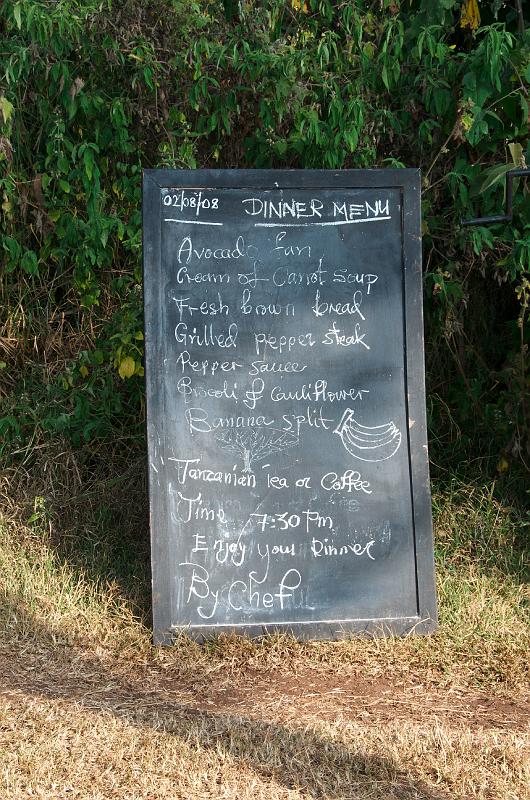 02/08/08 DINNER MENU
Avocado fan
Cream of Carrot Soup
Fresh brown bread
Grilled pepper steak
Pepper sauce
Brocoli & Cauliflower
Banana split
Tanzanian tea or Coffee
Time 7:30 Pm
Enjoy your Dinner
By Chef